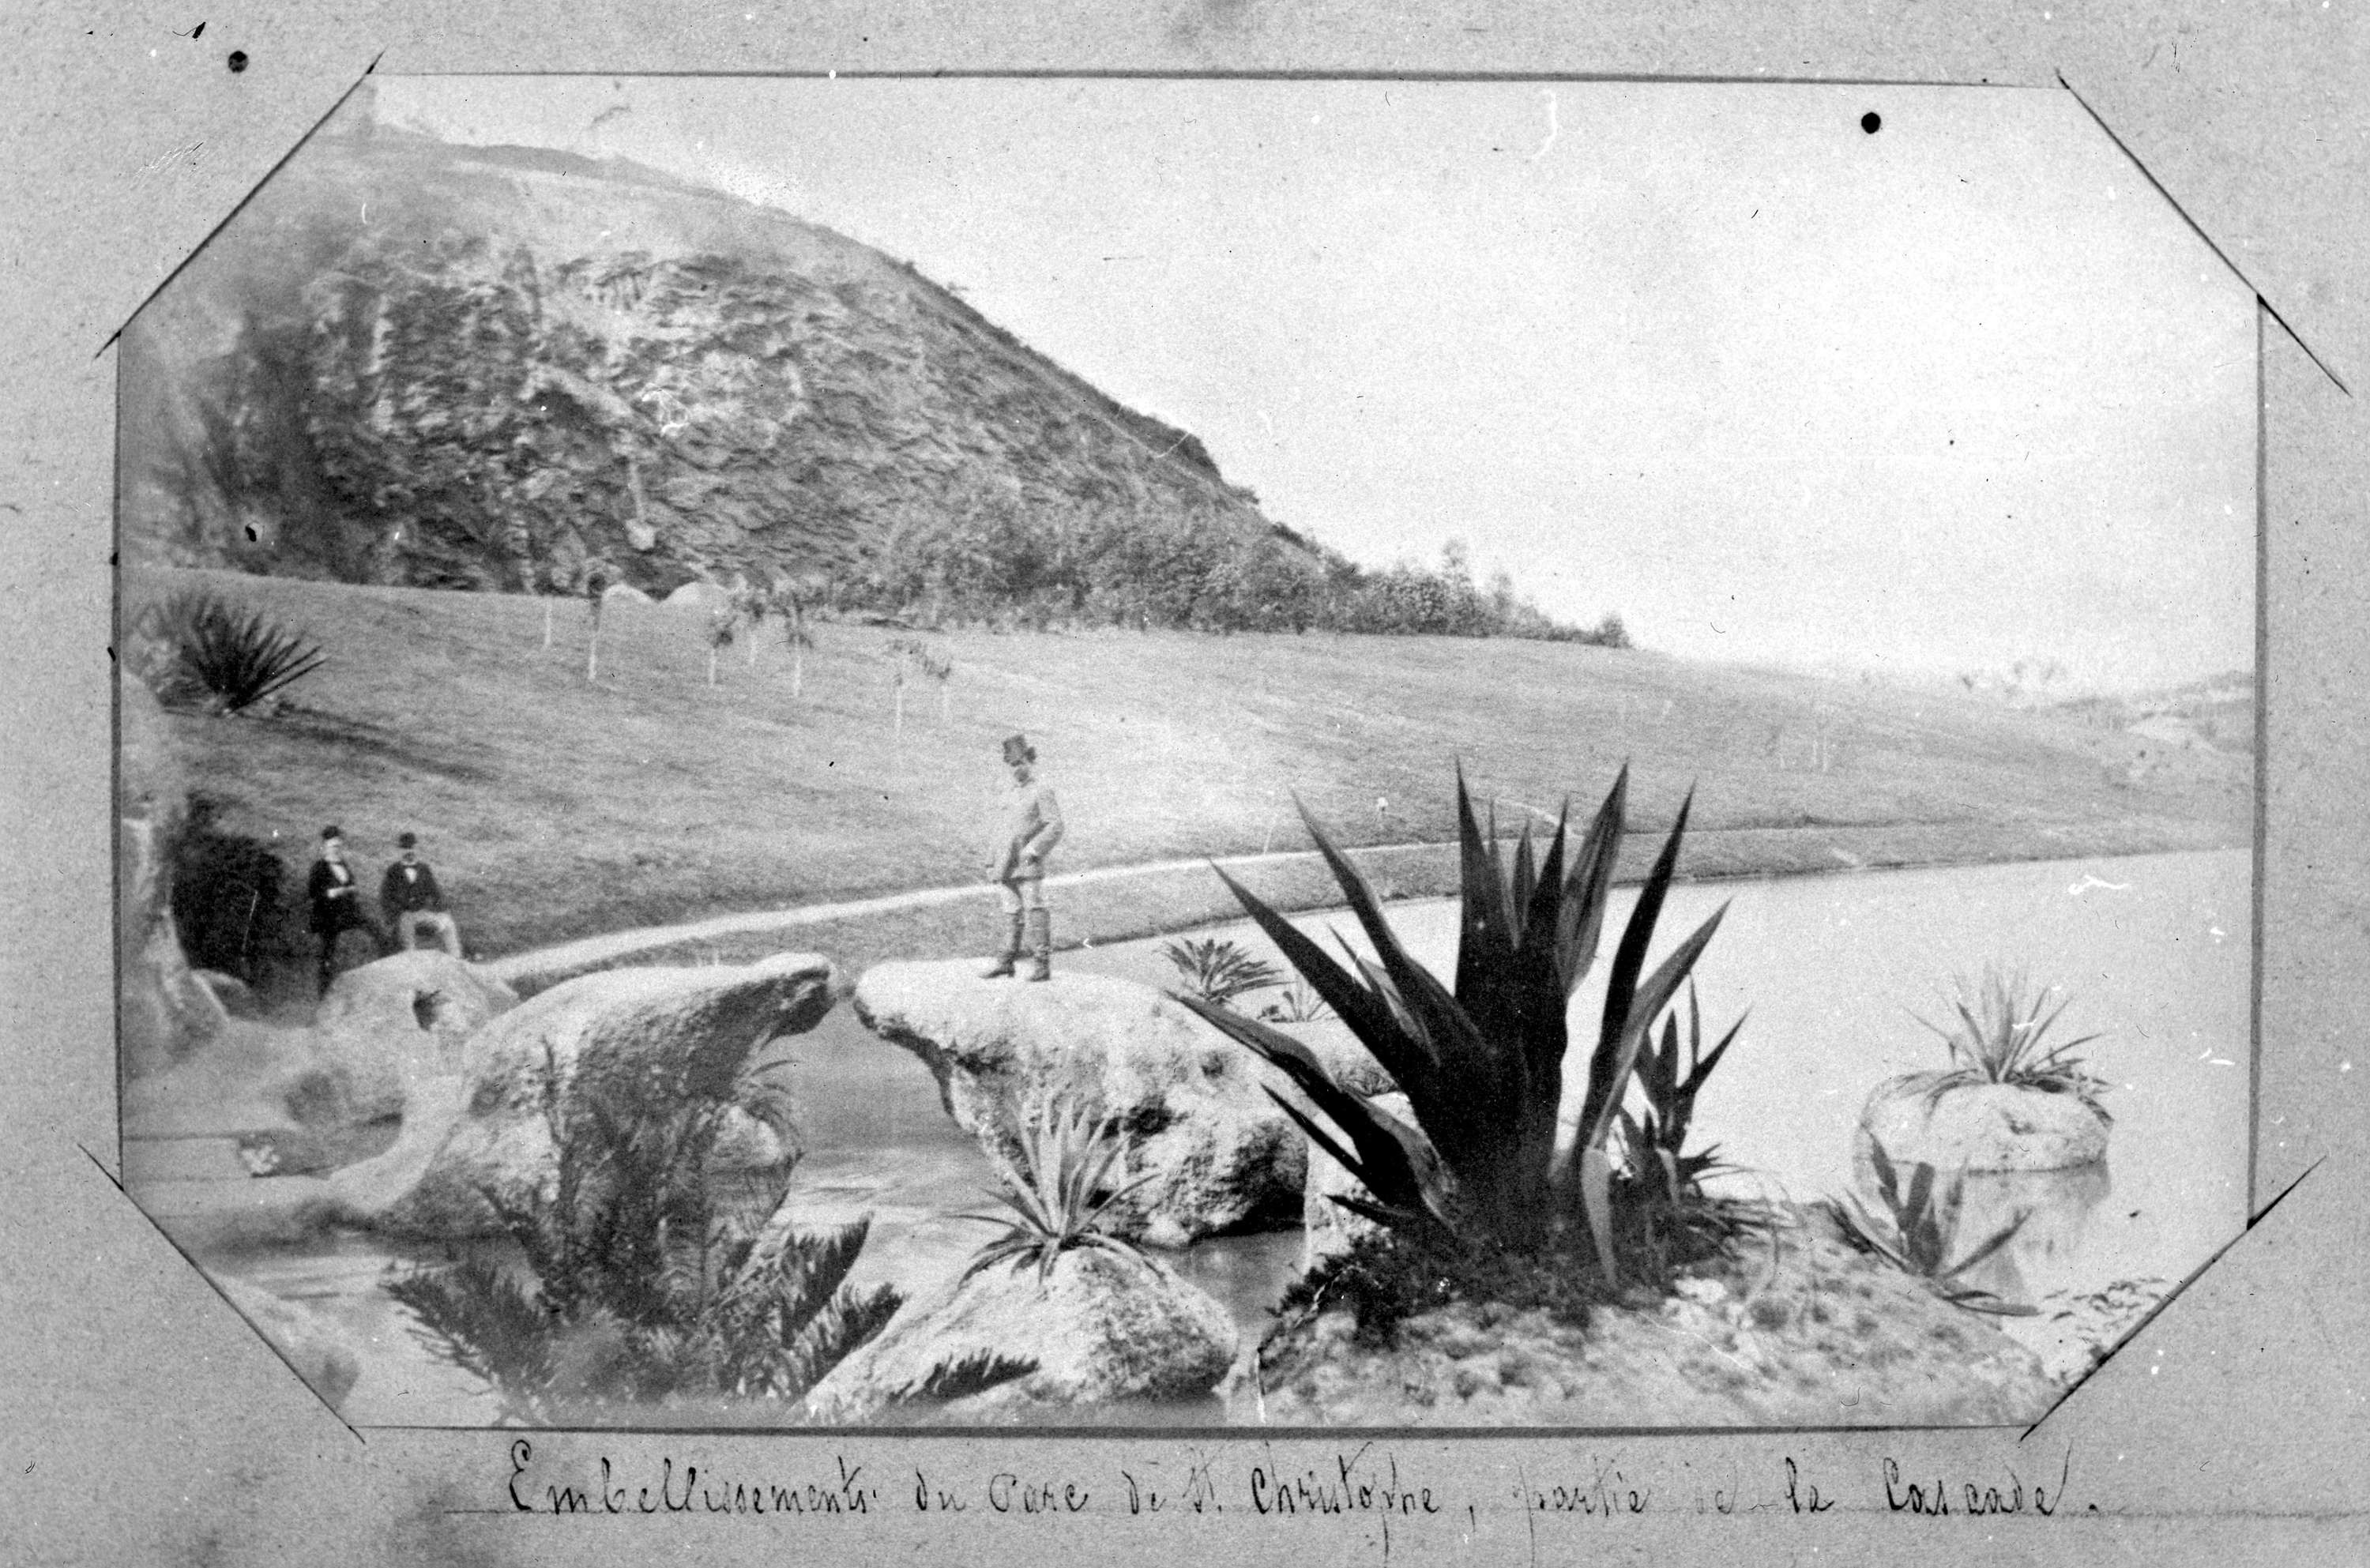 Embellissements du Parc de St. Christophe, partie de la Cascade.